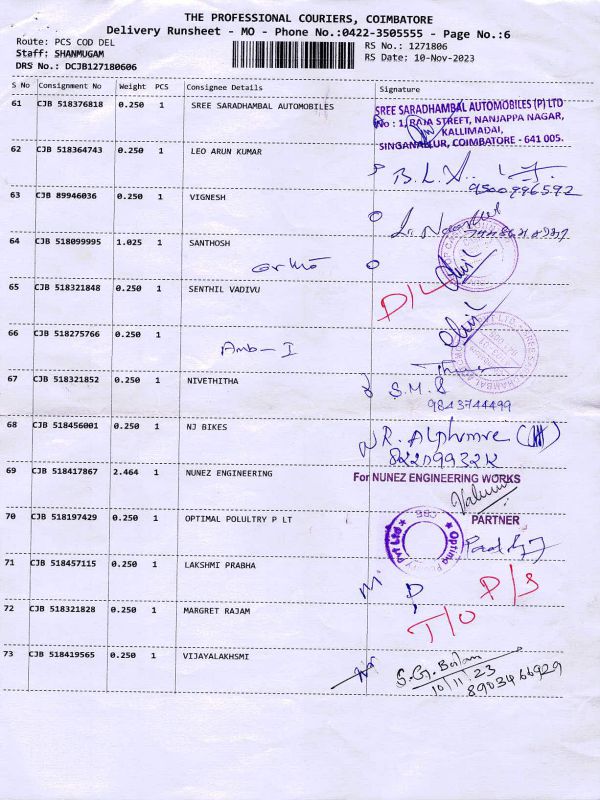 THE PROFESSIONAL COURIERS, COIMBATORE
Delivery Runsheet - MO - Phone No.:0422-3505555 - Page No.:6
Route: PCS COD DEL
Staff: SHANMUGAM
DRS No.: DCJB127180606
RS No.: 1271806
RS Date: 10-Nov-2023
S No Consignment No Weight PCS Consignee Details Signature
61 CJB 518376818 0.250 1 SREE SARADHAMBAL AUTOMOBILES
SREE SARADHAMBAL AUTOMOBILES (P) LTD
No : 1, RAJA STREET, NANJAPPA NAGAR,
KALLIMADAI,
SINGANALLUR, COIMBATORE - 641 005.
62 CJB 518364743 0.250 1 LEO ARUN KUMAR
9500996592
63 CJB 89946036 0.250 1 VIGNESH
64 CJB 518099995 1.025 1 SANTHOSH
65 CJB 518321848 0.250 1 SENTHIL VADIVU
D/L
66 CJB 518275766 0.250 1
Amb-I
67 CJB 518321852 0.250 1 NIVETHITHA
S.M.S
9843744499
68 CJB 518456001 0.250 1 NJ BIKES
69 CJB 518417867 2.464 1 NUNEZ ENGINEERING
For NUNEZ ENGINEERING WORKS
PARTNER
70 CJB 518197429 0.250 1 OPTIMAL POLULTRY P LT
71 CJB 518457115 0.250 1 LAKSHMI PRABHA
P/S
72 CJB 518321828 0.250 1 MARGRET RAJAM
T/O
73 CJB 518419565 0.250 1 VIJAYALAKHSMI
10/11.23
8903466929